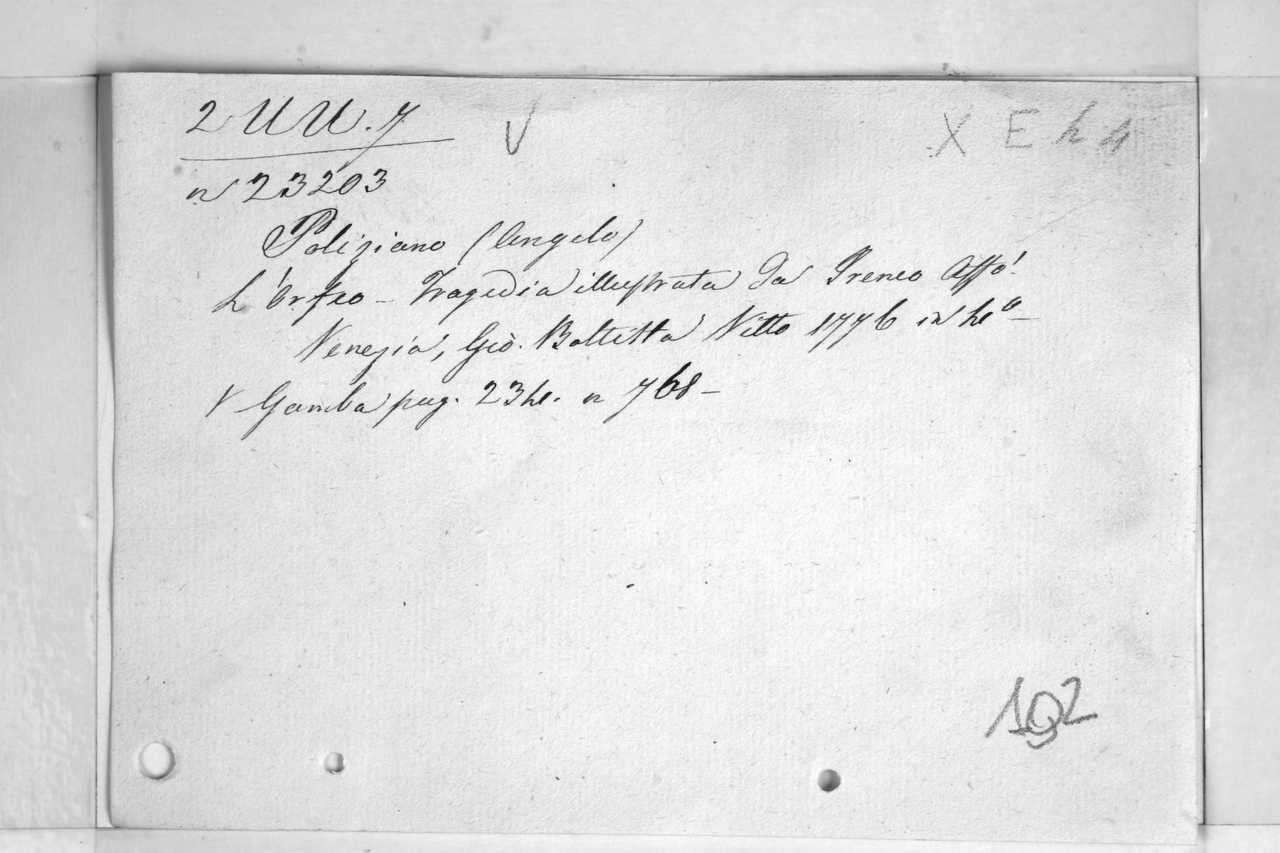 2 UU. 7 V X E h 4
n 23203
Poliziano (Angelo)
L'Orfeo - Tragedia illustrata da Ireneo Affo'.
Venezia, Gio. Battista Vitto 1776 in 4º -
V Gamba pag. 234. n 768 -
192